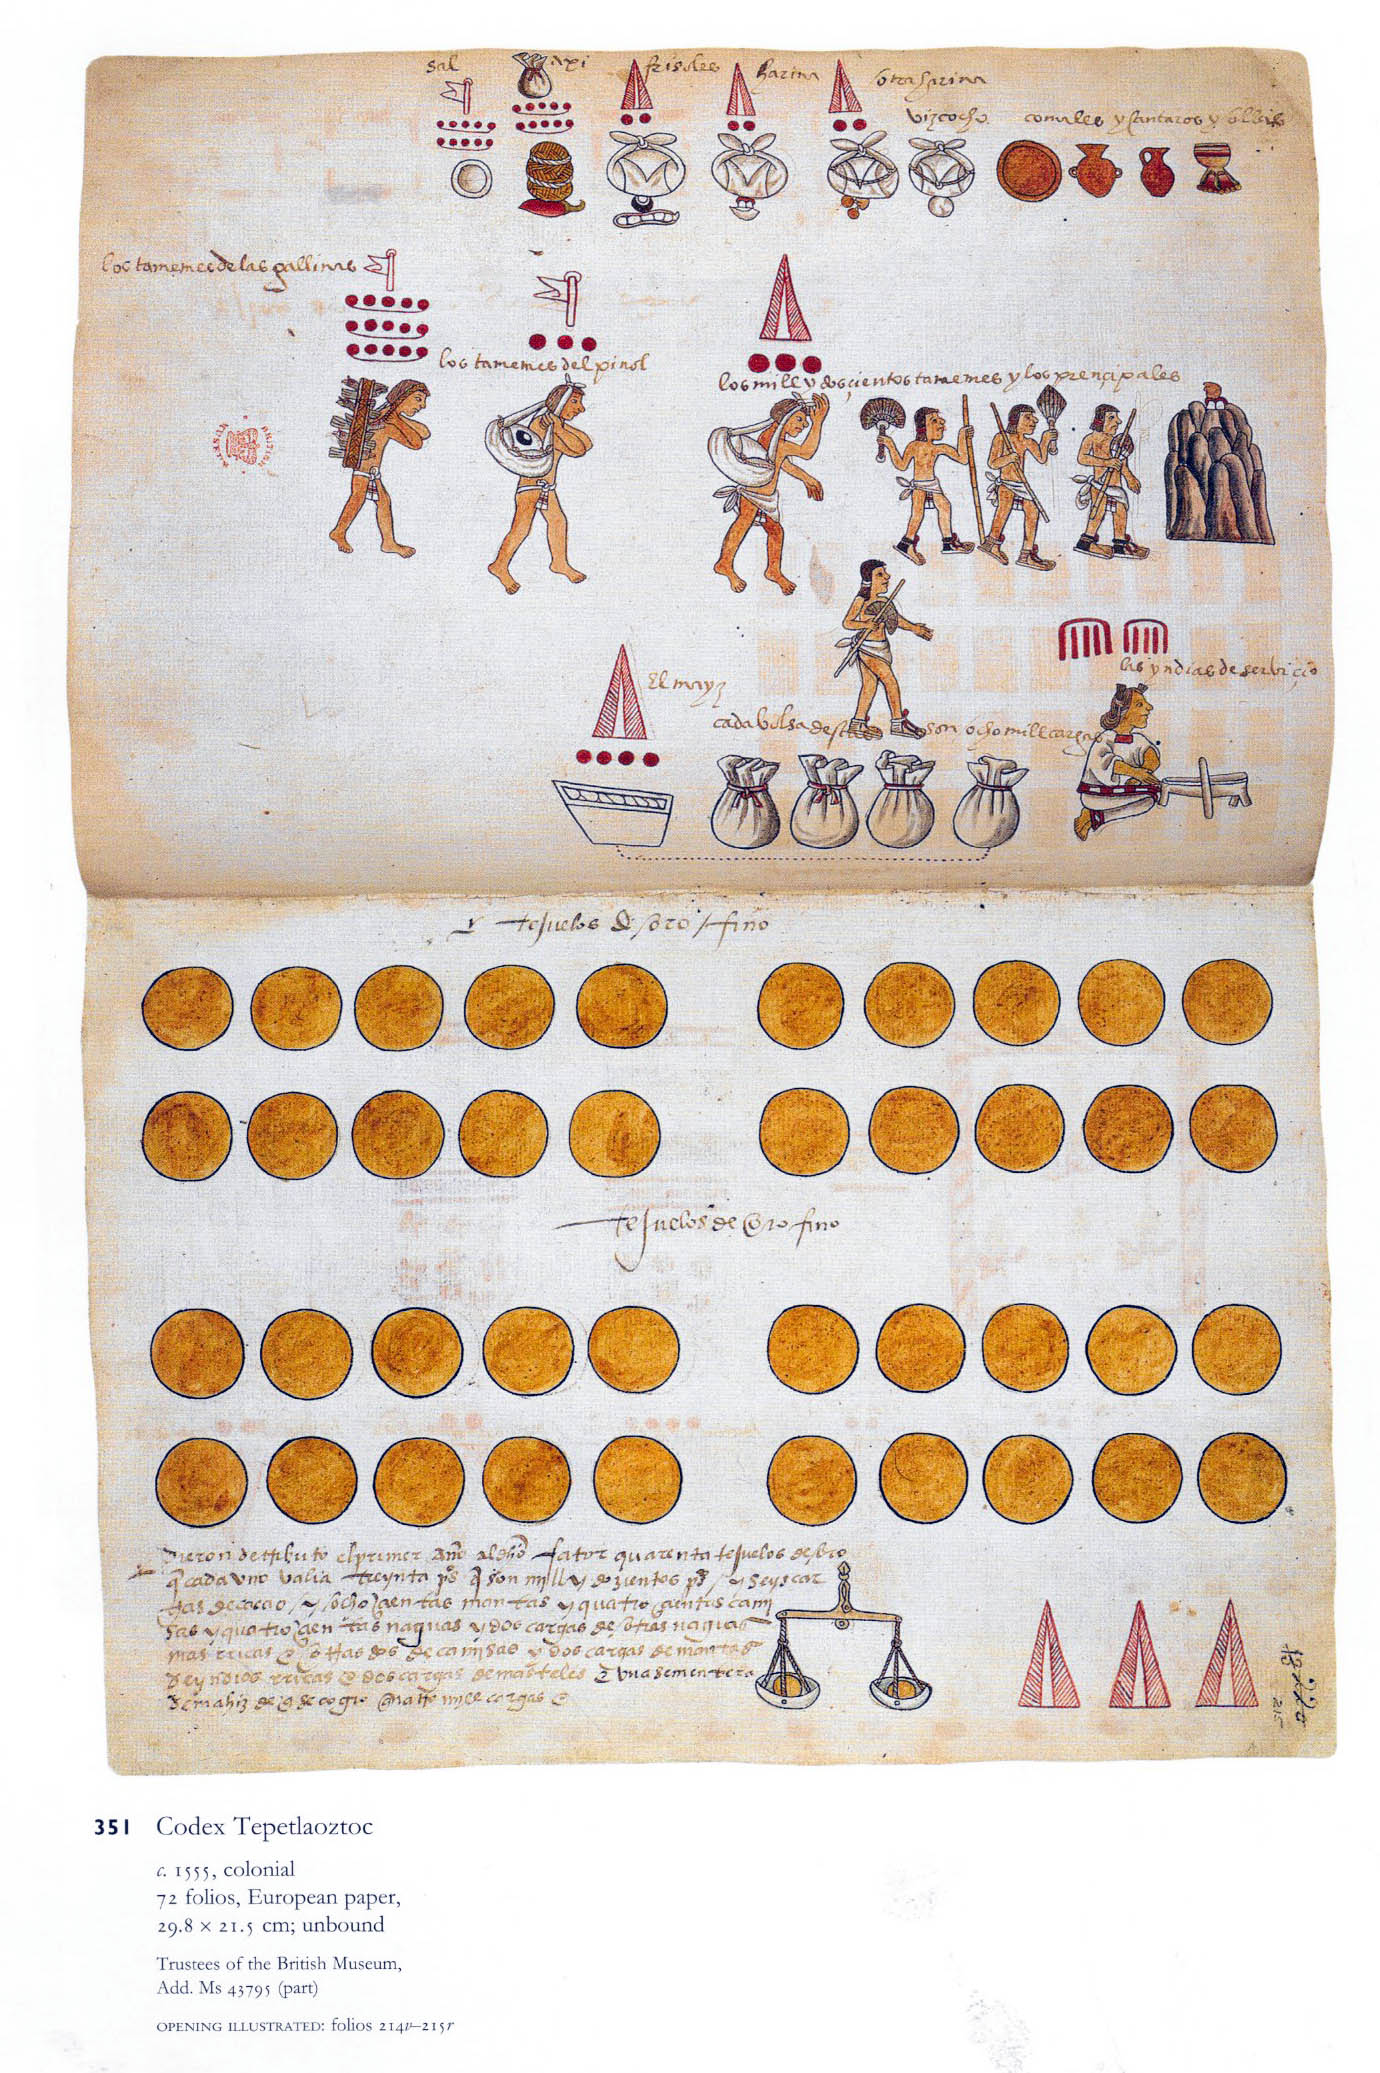 sal
axi
frisoles
harina
otra harina
vizcocho
comales y cantaros y
los tamemes de las gallinas
los tamemes del pinol
los mill y doscientos tamemes y los prencipales
BRITISH
MUSEUM
las yndias de servicio
El mayz
cada bolsa destas son ocho mill cargas
tejuelos de oro fino
tejuelos de oro fino
dieron de tributo el primer Año al dho fator quarenta tejuelos de oro
q cada uno valia treynta ps q son mill y dozientos ps y seys car
gas de cacao y ocho çientas mantas y quatro çientas cami
sas y quatro çientas naguas y dos cargas de otras naguas
mas rricas e otras dos de camisas y dos cargas de mantas
de yndios rricas e dos cargas de masteles e una sementera
de mahiz de q se cogio quatro mill cargas
215
351 Codex Tepetlaoztoc
c. 1555, colonial
72 folios, European paper,
29.8 × 21.5 cm; unbound
Trustees of the British Museum,
Add. Ms 43795 (part)
OPENING ILLUSTRATED: folios 214v–215r